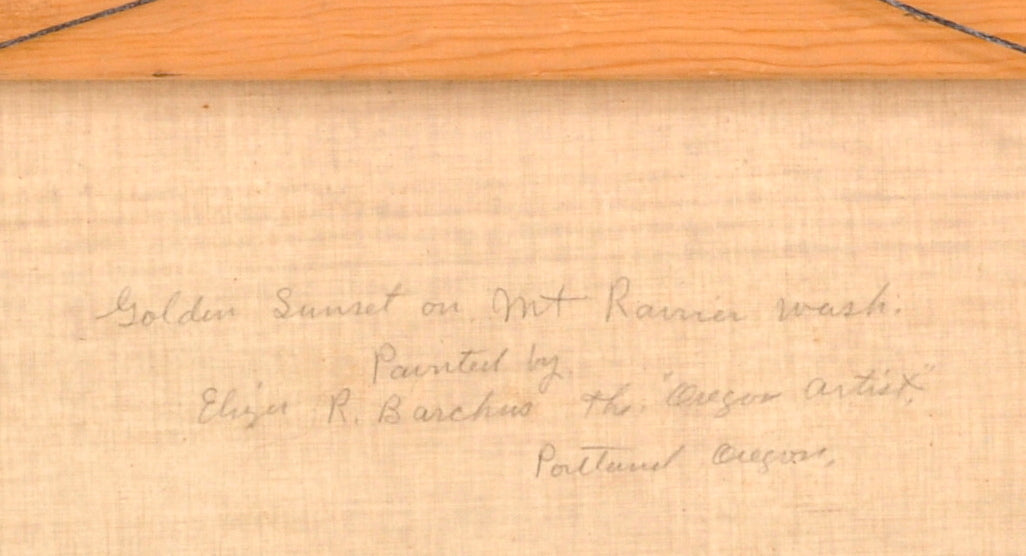 Golden Sunset on Mt Rainier wash.
Painted by
Eliza R. Barchus the "Oregon artist,"
Portland Oregon,